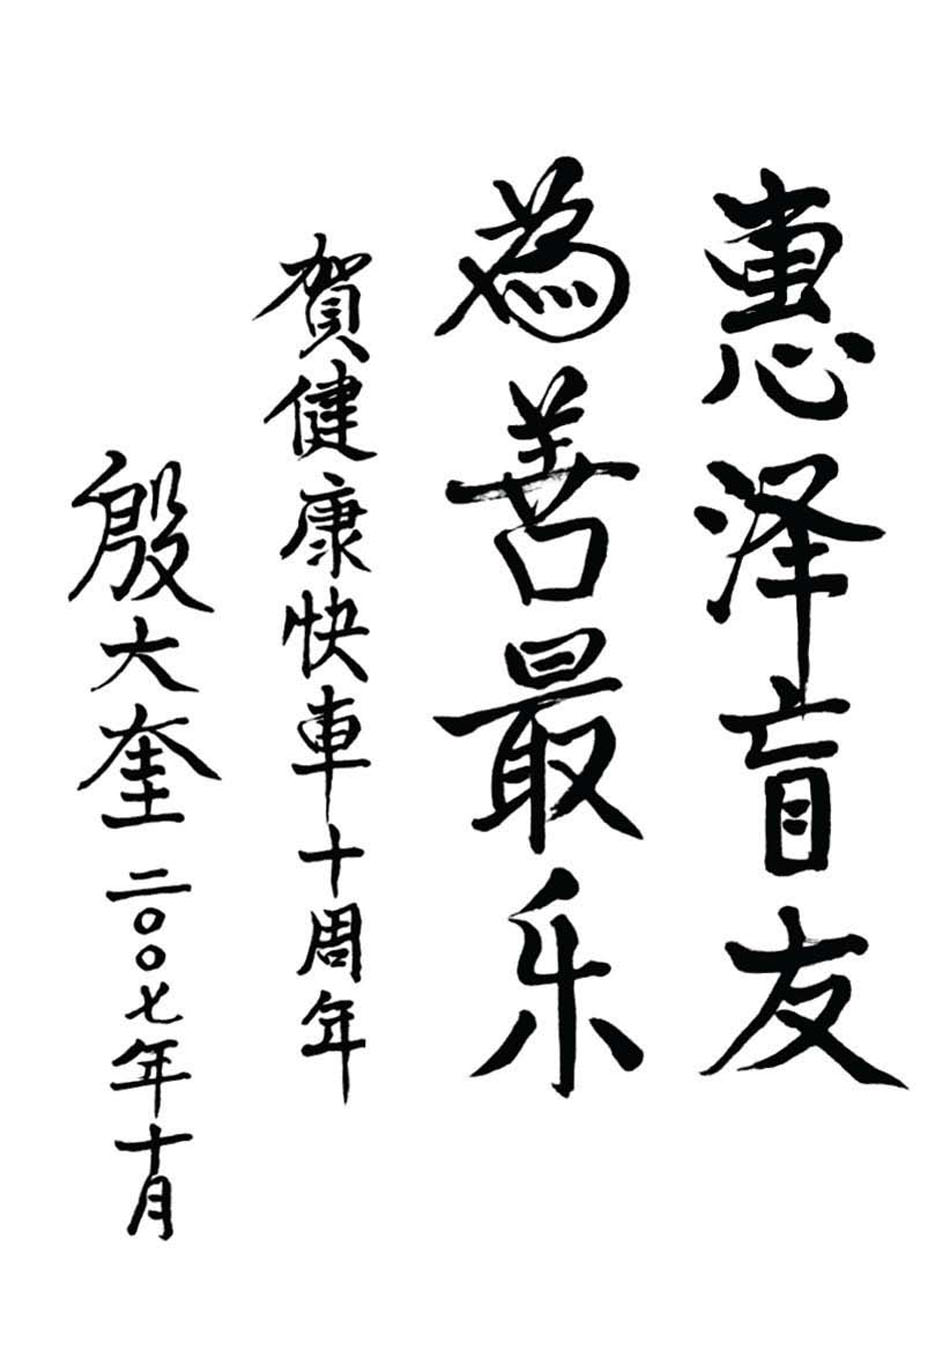 惠泽盲友
為善最乐
賀健康快車十周年
殷大奎 二〇〇七年十月